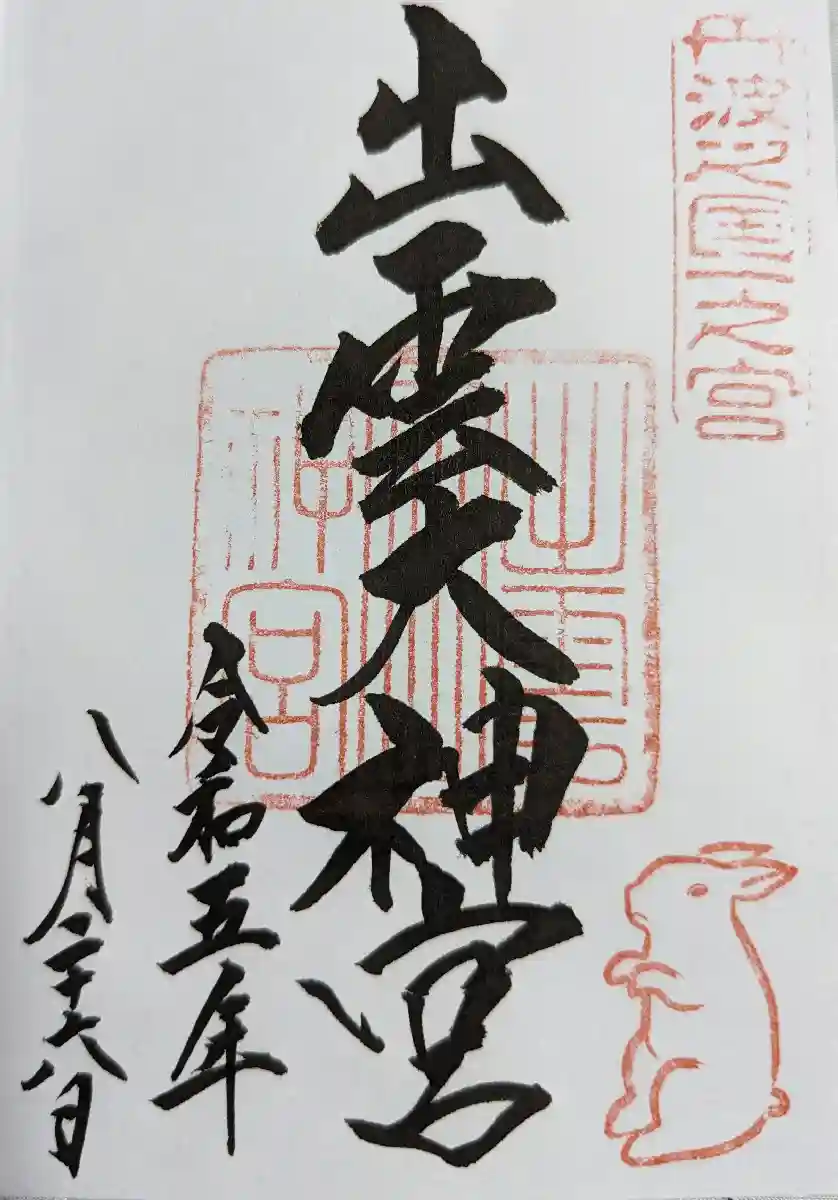 丹波之国一之宮
出雲大神宮
出雲
大
神宮
令和五年
八月二十六日